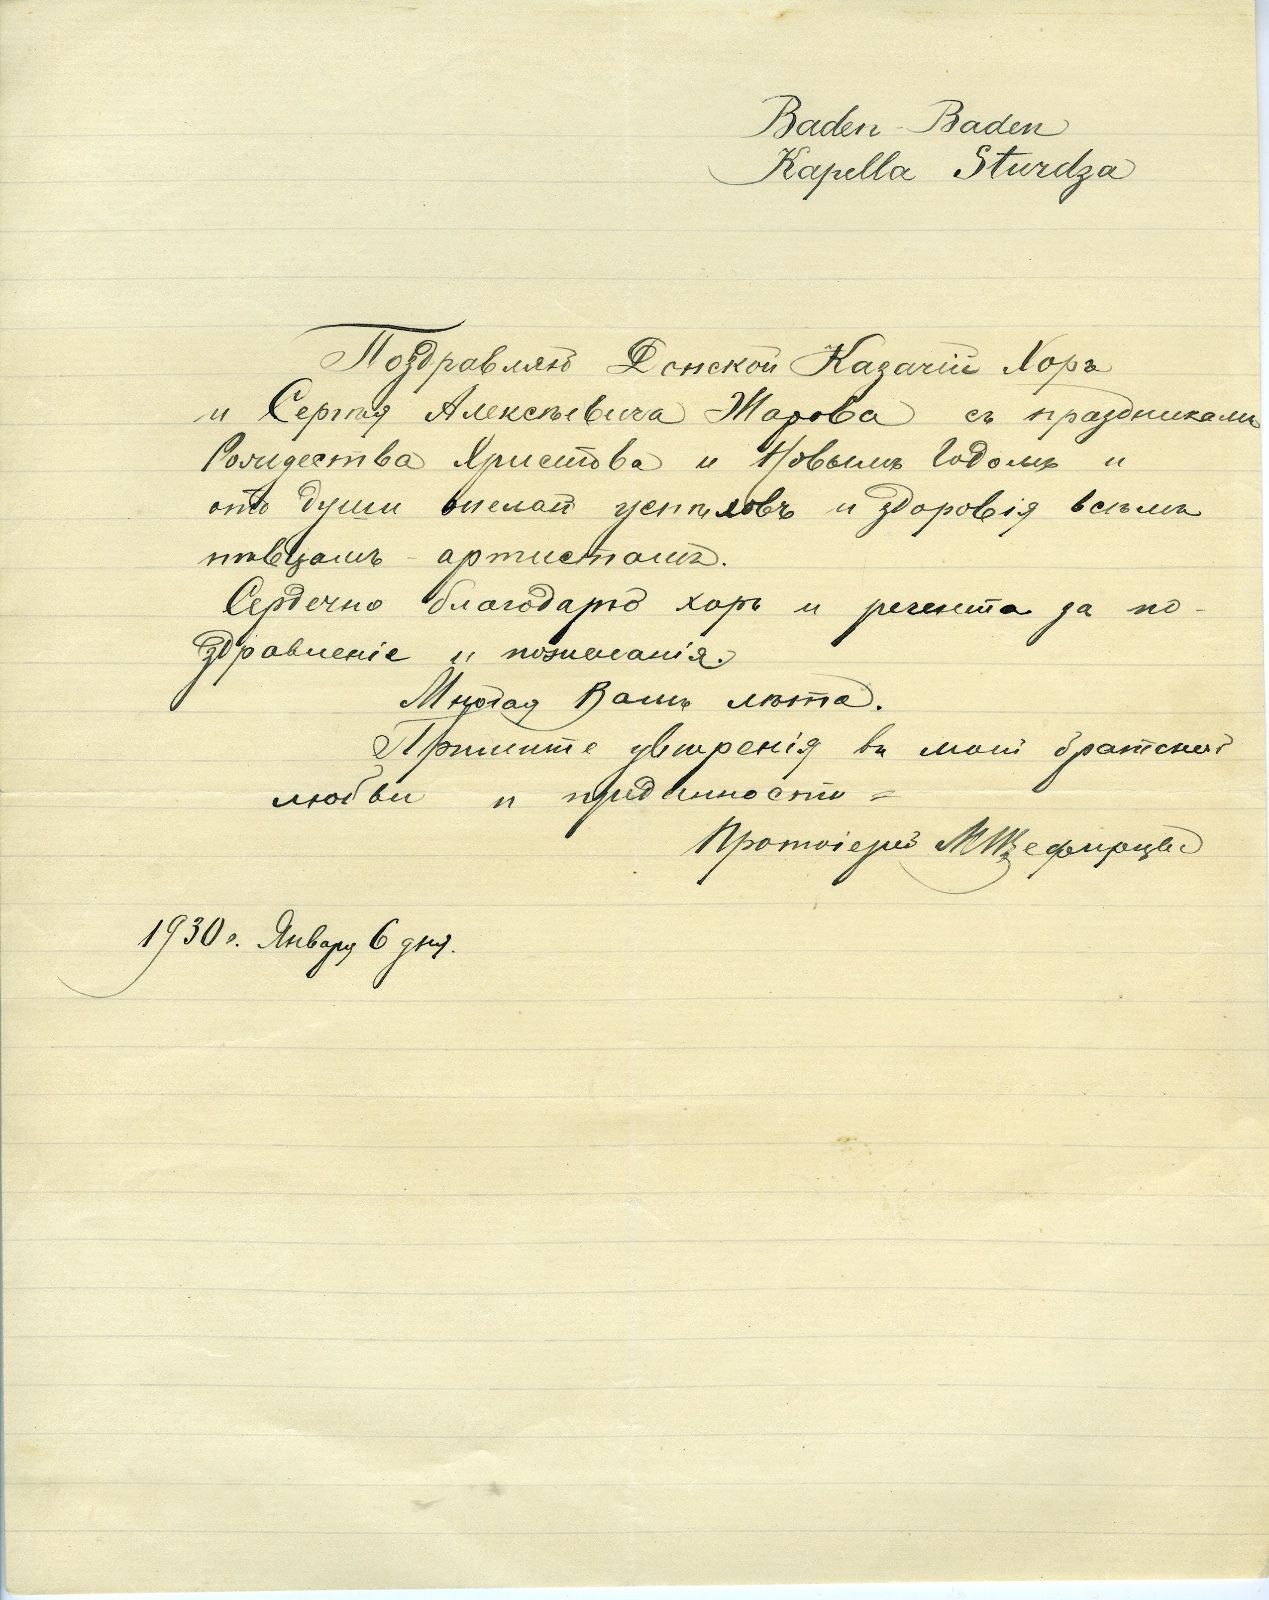 Baden-Baden
Kapella Sturdza
Поздравляю Донской Казачій Хоръ
и Сергѣя Алексѣевича Жарова съ праздниками
Рождества Христова и Новымъ Годомъ и
отъ души желаю успѣховъ и здоровія всѣмъ
пѣвцамъ-артистамъ.
Сердечно благодарю хоръ и регента за по-
здравленіе и пожеланія.
Многая Вамъ лѣта.
Примите увѣренія въ моей братской
любви и преданности =
Протоіерей М
1930 г. Января 6 дня.